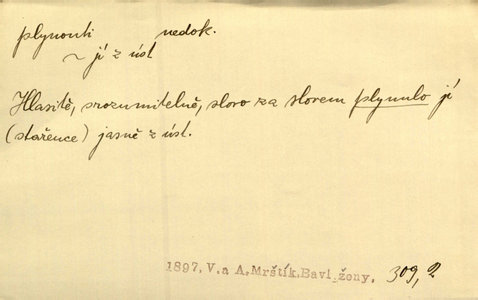 plynouti nedok.
~ jí z úst
Hlasitě, srozumitelně, slovo za slovem plynulo jí
(stařence) jasně z úst.
1897, V.a A, Mrštík, Bavl.ženy, 309,2